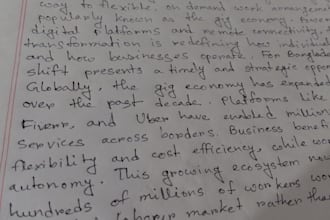 way to flexible, on demand work arrangements
popularly known as the gig economy. Fueled
digital platforms and remote connectivity,
transformation is redefining how individ
and how businesses operate. For Banglade
shift presents a timely and strategic oppor
Globally, the gig economy has expanded
over the past decade. Platforms like
Fiverr, and Uber have enabled million
services across borders. Business benef
flexibility and cost efficiency, while wor
autonomy. This growing ecosystem now
hundreds of millions of workers wor
market rather tha